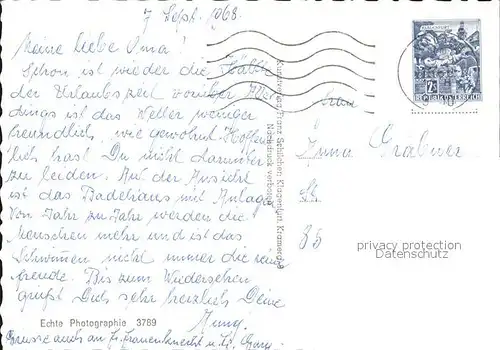 7. Sept. 1968.
Meine liebe Oma!
Schon ist wieder die Hälfte
der Urlaubszeit vorüber. Aller
dings ist das Wetter weniger
freundlich, wie gewohnt. Hoffent
lich hast Du nicht darunter
zu leiden. Auf der Ansicht
ist das Badehaus mit Anlage
Von Jahr zu Jahr werden die
Menschen mehr und ist das
Schwimmen nicht immer die reine
Freude. Bis zum Wiedersehen
grüßt Dich sehr herzlich Deine
Echte Photographie 3789
Grüsse auch an
Nachdruck verboten
KLAGENFURT
2
REPUBLIK ÖSTERREICH
Frau
Anna Grabner
85
privacy protection
Datenschutz